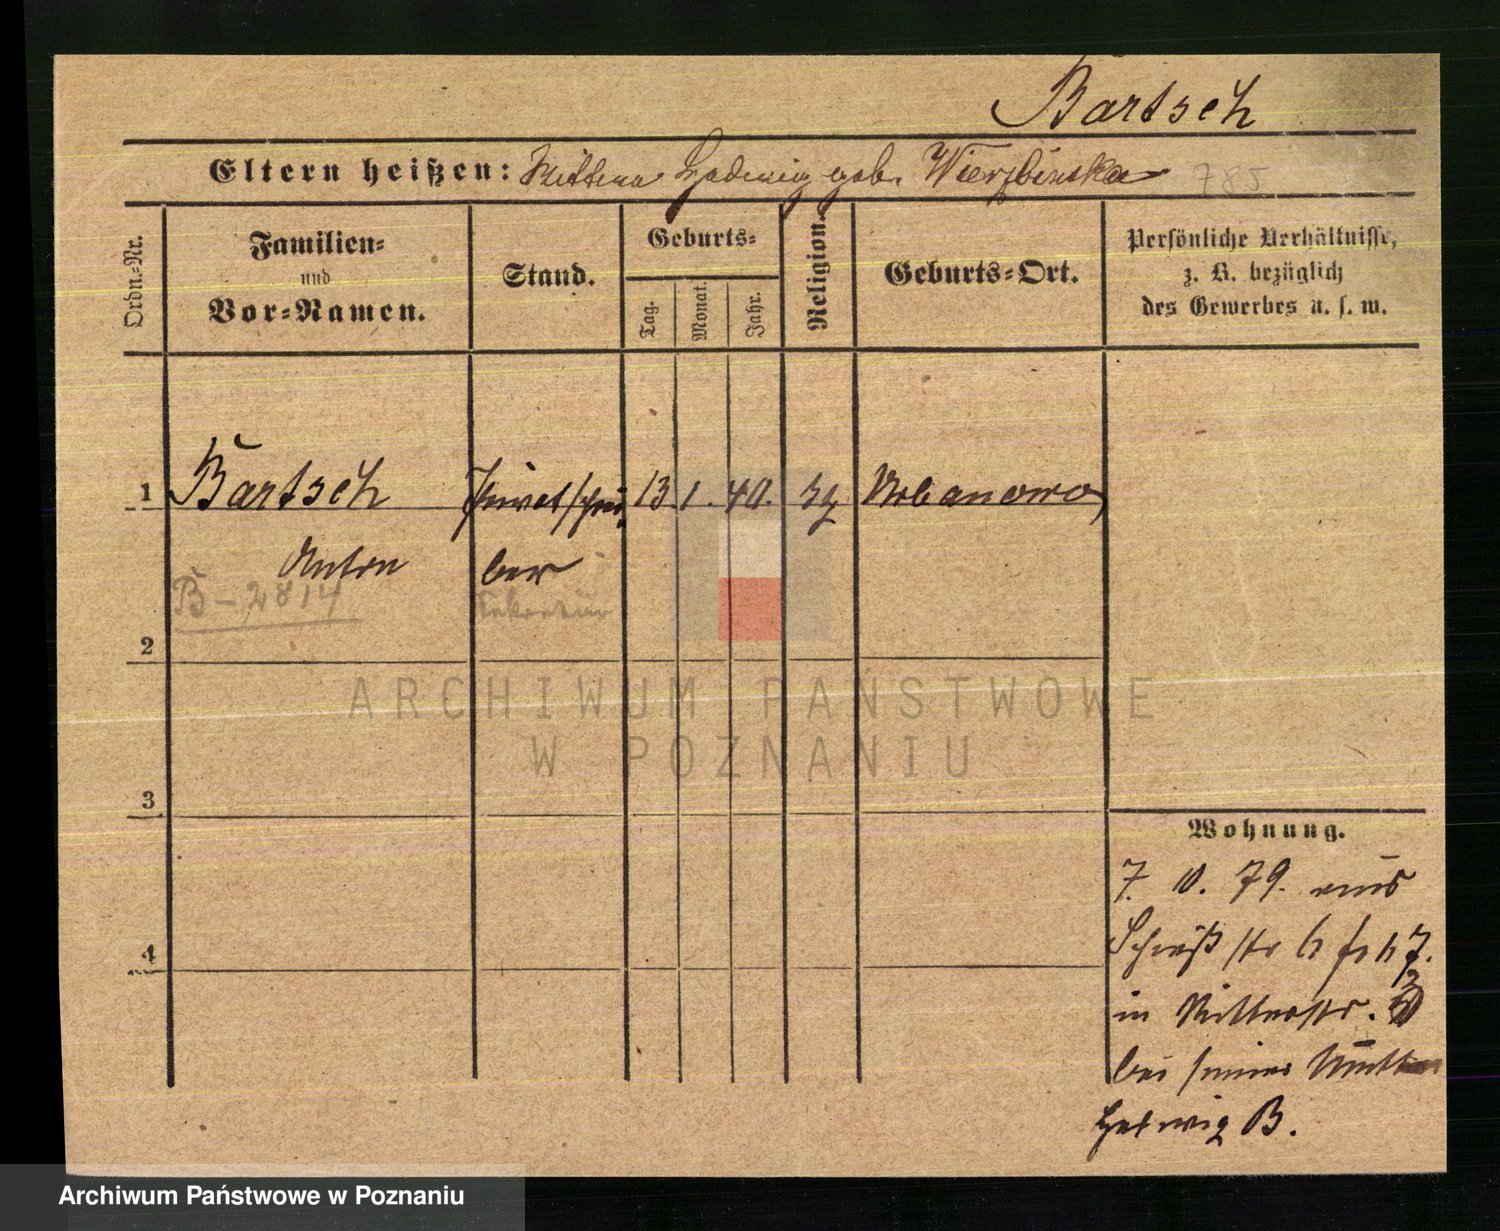 Bartsch
Eltern heißen: Mutter Hedwig geb. Wierzbinska 785
Ordn.-Nr.
Familien-
und
Vor-Namen.
Stand.
Geburts-
Tag.
Monat.
Jahr.
Religion.
Geburts-Ort.
Persönliche Verhältnisse,
z. B. bezüglich
des Gewerbes u. s. w.
1 Bartsch Privatschrei- 13. 1. 40. Urbanowo
Anton ber
B-2814 Sekretär
2
ARCHIWUM PAŃSTWOWE
W POZNANIU
3
Wohnung.
7. 10. 79. aus
4
in Ritterstr.
bei seiner Mutter
Hedwig B.
Archiwum Państwowe w Poznaniu